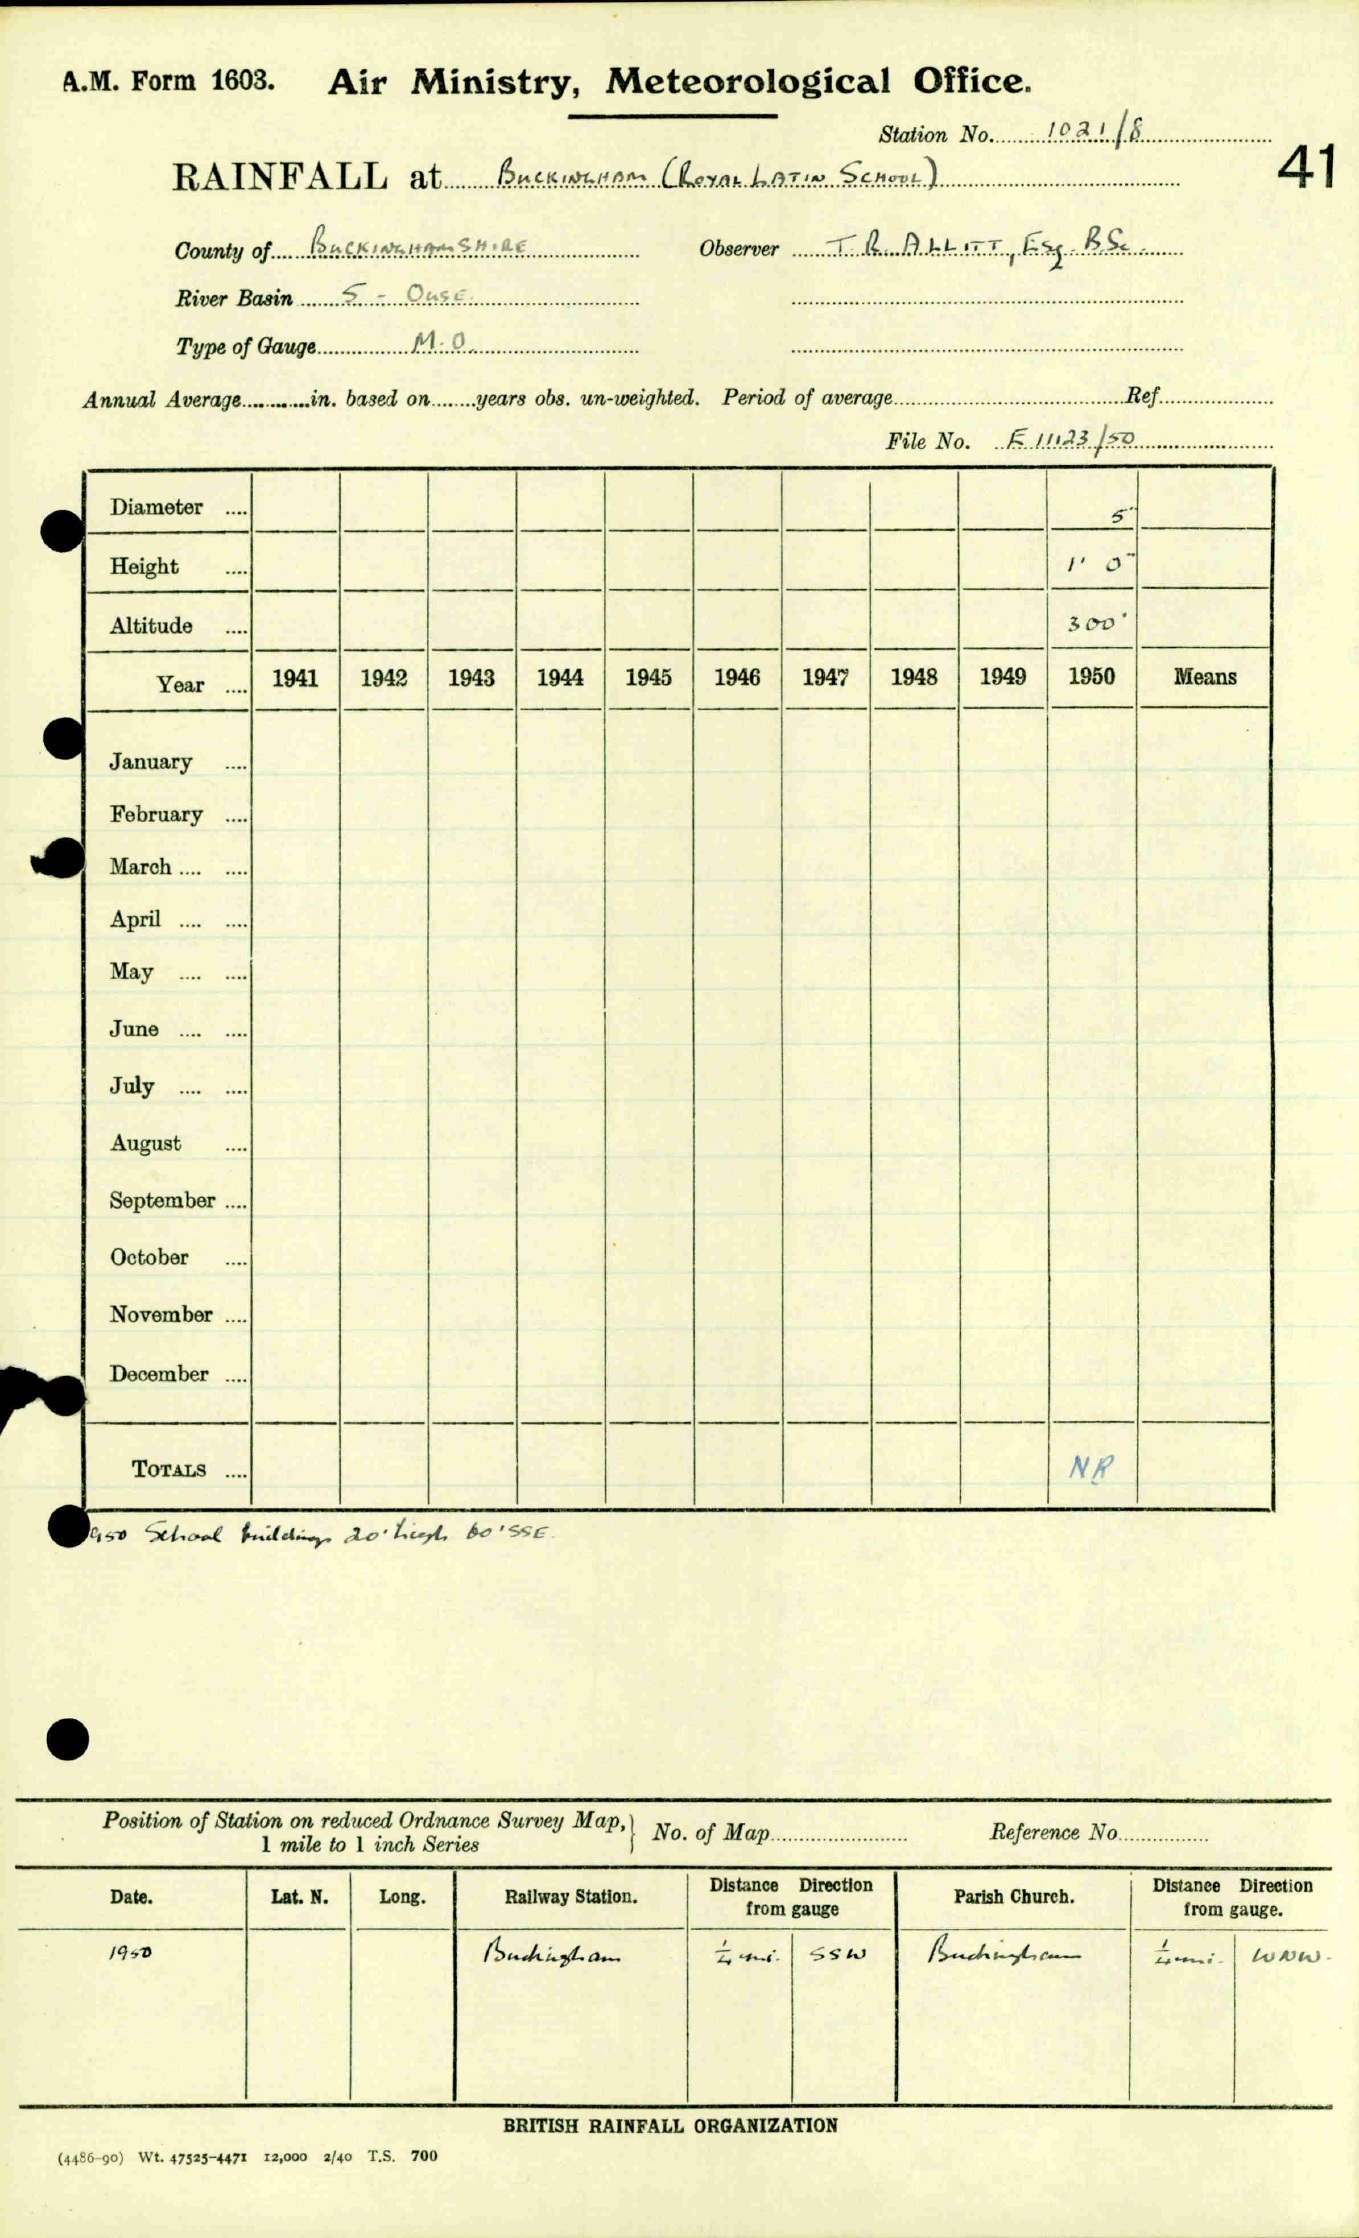 A.M. Form 1603. Air Ministry, Meteorological Office.
Station No. 1021/8
41
RAINFALL at Buckingham (Royal Latin School)
County of Buckinghamshire Observer T. R. Allitt, Esq. B.Sc.
River Basin 5 - Ouse.
Type of Gauge M.O.
Annual Average in. based on years obs. un-weighted. Period of average Ref
File No. E 11123/50
Diameter .... 5"
Height .... 1' 0"
Altitude .... 300'
Year .... 1941 1942 1943 1944 1945 1946 1947 1948 1949 1950 Means
January ....
February ....
March .... ....
April .... ....
May .... ....
June .... ....
July .... ....
August ....
September ....
October ....
November ....
December ....
TOTALS .... NR
950 School buildings 20' high 60' SSE.
Position of Station on reduced Ordnance Survey Map, } No. of Map Reference No.
1 mile to 1 inch Series
Date. Lat. N. Long. Railway Station. Distance Direction from gauge Parish Church. Distance Direction from gauge.
1950 Buckingham ¼ mi. SSW Buckingham ¼ mi. WNW.
BRITISH RAINFALL ORGANIZATION
(4486-90) Wt. 47525-4471 12,000 2/40 T.S. 700